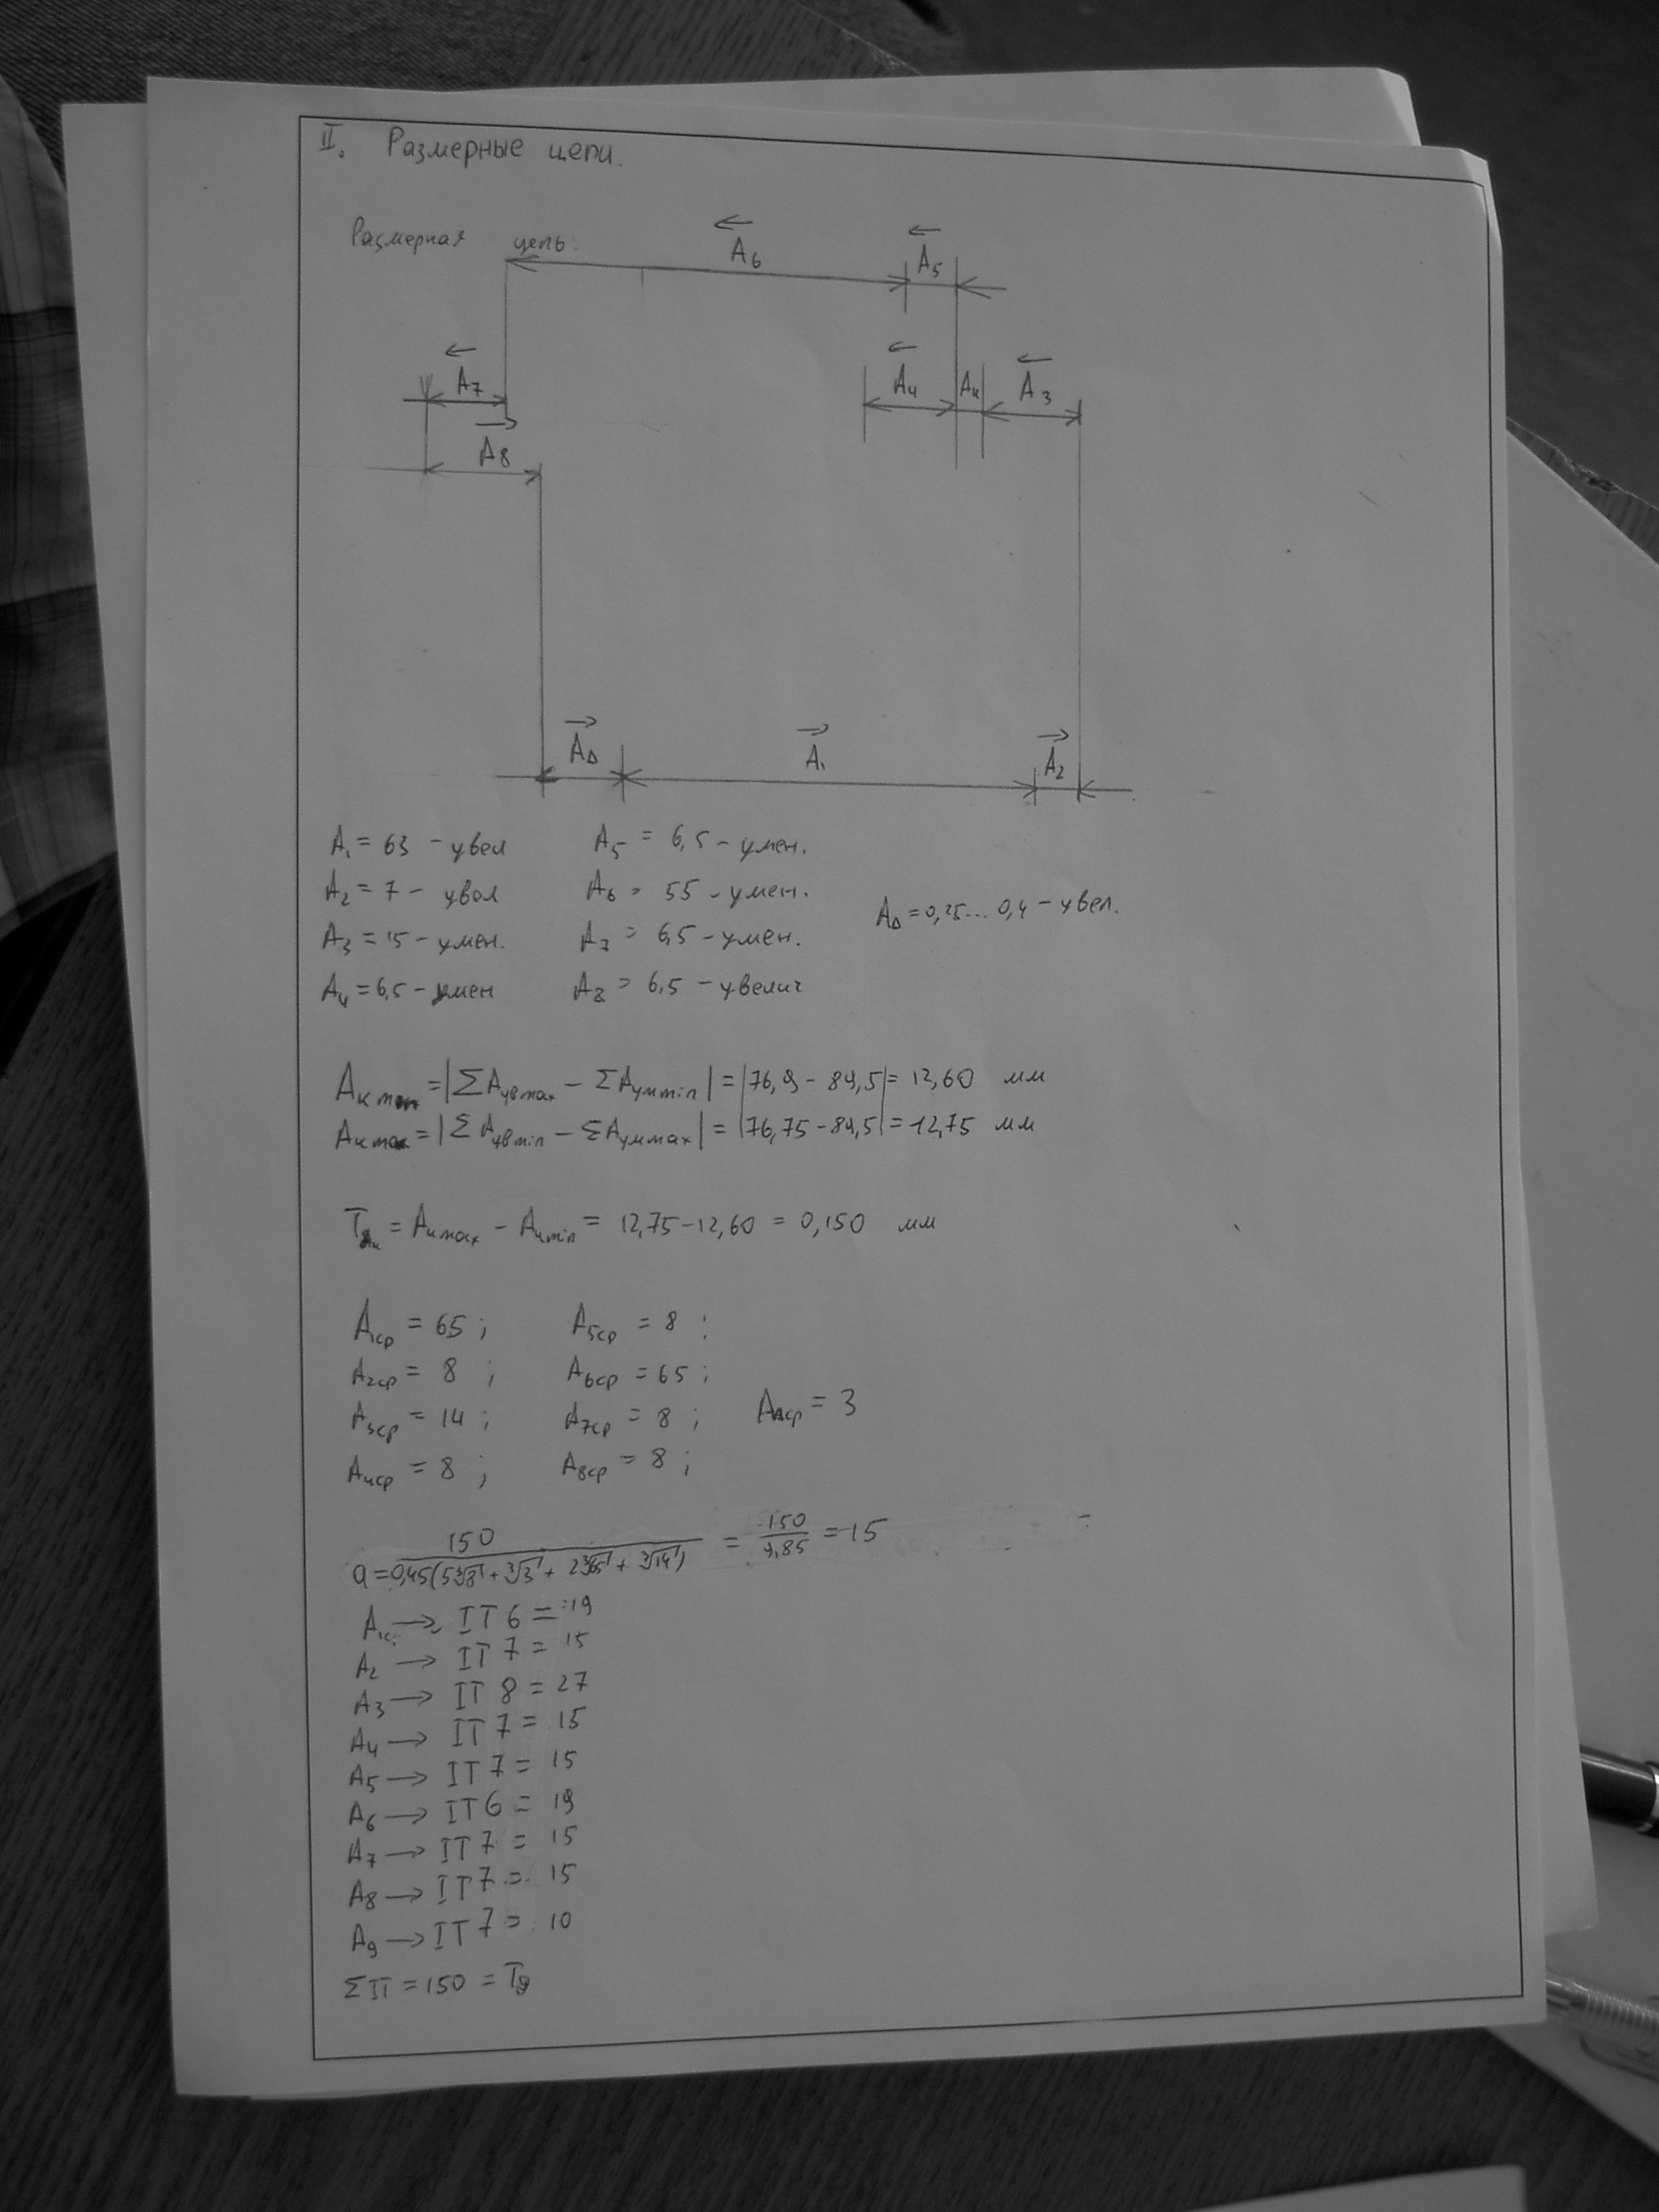 II. Размерные цепи.
Размерная цепь:
A6 A5
A7 A4 Aк A3
A8
AΔ A1 A2
A1 = 63 - увел A5 = 6,5 - умен.
A2 = 7 - увел A6 = 55 - умен.
AΔ = 0,25...0,4 - увел.
A3 = 15 - умен. A7 = 6,5 - умен.
A4 = 6,5 - умен A8 = 6,5 - увелич
Aк min = |ΣAув max - ΣAум min| = |76,9 - 89,5| = 12,60 мм
Aк max = |ΣAув min - ΣAум max| = |76,75 - 89,5| = 12,75 мм
TAк = Aк max - Aк min = 12,75 - 12,60 = 0,150 мм
A1ср = 65 ; A5ср = 8 ;
A2ср = 8 ; A6ср = 65 ;
A3ср = 14 ; A7ср = 8 ; AΔср = 3
A4ср = 8 ; A8ср = 8 ;
a = 150 / 0,45(5∛8 + ∛3 + 2∛65 + ∛14) = 150 / 9,85 = 15
A1 → IT 6 = 19
A2 → IT 7 = 15
A3 → IT 8 = 27
A4 → IT 7 = 15
A5 → IT 7 = 15
A6 → IT 6 = 19
A7 → IT 7 = 15
A8 → IT 7 = 15
A9 → IT 7 = 10
ΣIT = 150 = T